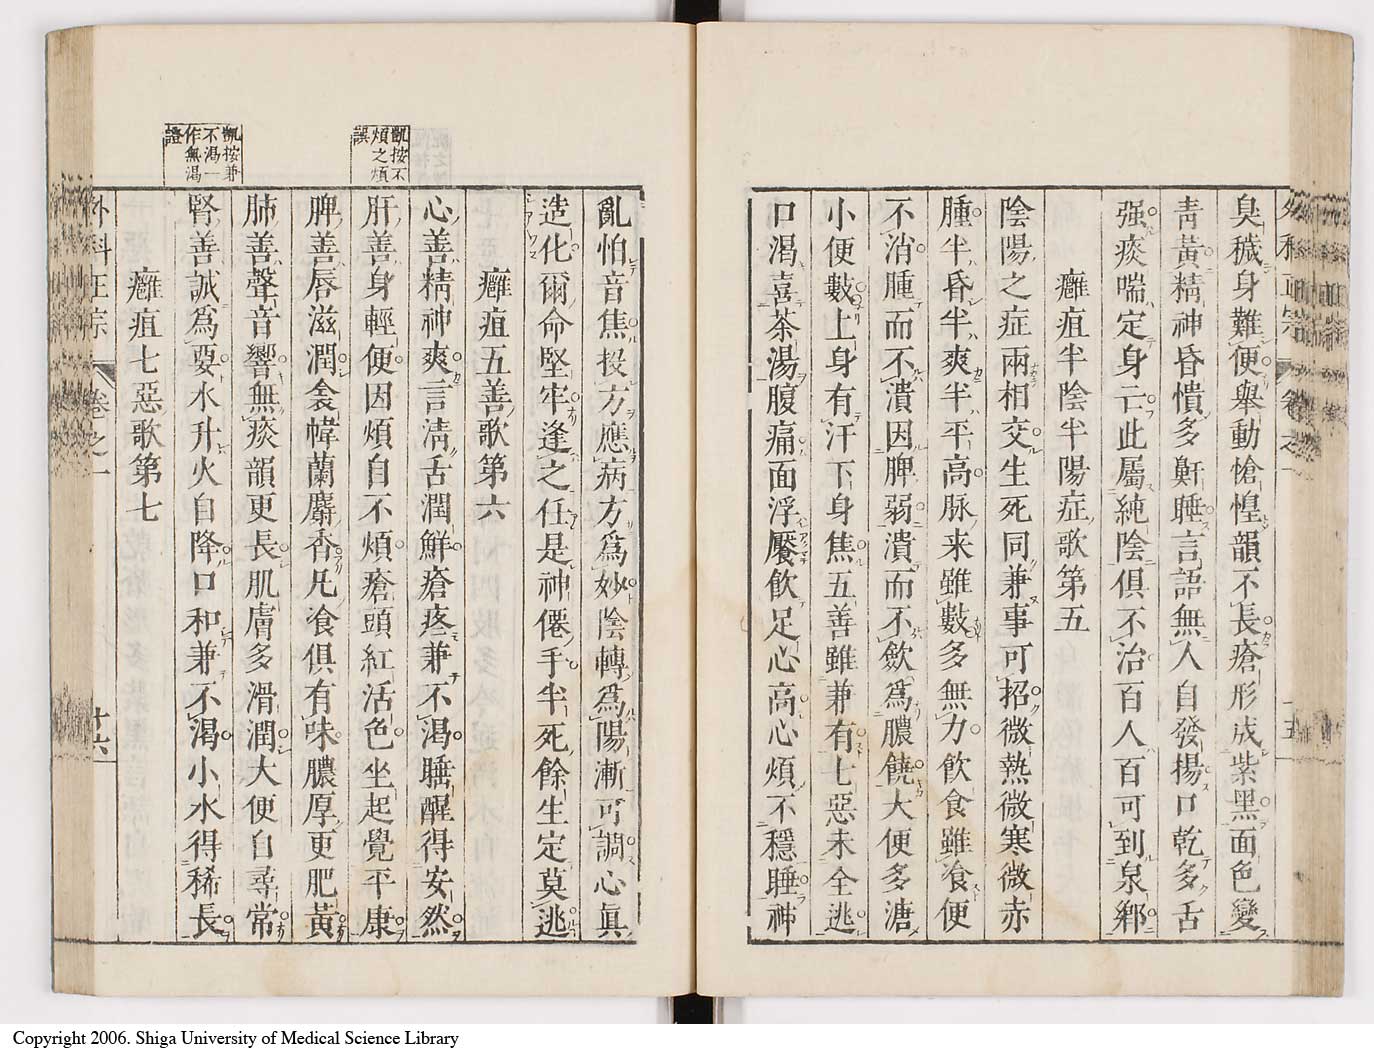 臭穢身難便舉動愴惶韻不長瘡形成紫黑面色變
青黃精神昏憒多鼾睡言語無人自發揚口乾多舌
强痰喘定身亡此屬純陰俱不治百人百可到泉鄕
癰疽半陰半陽症歌第五
陰陽之症兩相交生死同兼事可招微熱微寒微赤
腫半昏半爽半平高脉来雖數多無力飲食雖飡便
不消腫而不潰因脾弱潰而不歛爲膿饒大便多溏
小便數上身有汗下身焦五善雖兼有七惡未全逃
口渴喜茶湯腹痛面浮饜飲足心高心煩不穩睡神
亂怕音焦投方應病方爲妙陰轉爲陽漸可調心眞
造化爾命堅牢逢之任是神僊手半死餘生定莫逃
癰疽五善歌第六
心善精神爽言淸舌潤鮮瘡疼兼不渴睡醒得安然
肝善身輕便因煩自不煩瘡頭紅活色坐起覺平康
脾善唇滋潤衾幃蘭麝香凡飡俱有味膿厚更肥黃
肺善聲音響無痰韻更長肌膚多滑潤大便自尋常
腎善誠爲要水升火自降口和兼不渴小水得稀長
癰疽七惡歌第七
外科正宗 卷之一 十六
凱按不
煩之煩
誤
凱按兼
不渴一
作無渴
證
Copyright 2006. Shiga University of Medical Science Library